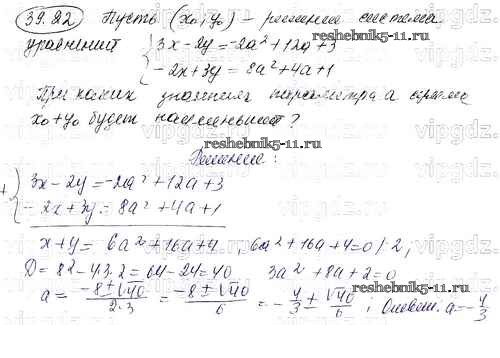 39.82 Пусть (x₀; y₀) – решение системы
уравнений { 3x - 2y = -2a² + 12a + 3
- 2x + 3y = 8a² + 4a + 1
При каких значениях параметра a сумма
x₀ + y₀ будет наименьшей?
Решение:
+ { 3x - 2y = -2a² + 12a + 3
- 2x + 3y = 8a² + 4a + 1
x + y = 6a² + 16a + 4 ; 6a² + 16a + 4 = 0 /: 2,
D = 8² - 4·3·2 = 64 - 24 = 40 3a² + 8a + 2 = 0
a = (-8 ± √40)/(2·3) = (-8 ± √40)/6 = - 4/3 ± √40/6 ; Ответ: a = - 4/3
www.e-reshebnik-11.com
vipgdz.com